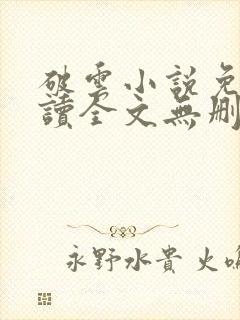 破雲小說免
讀全文無刪
永野水貴 火鳴